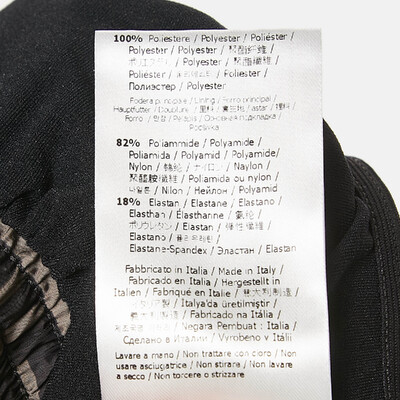 100% Poliestere / Polyester / Poliéster /
Polyester / Polyester / 聚酯纖維 /
/ Polyester / 聚酯纖維 /
Poliéster / / Poliester /
Полиэстер / Polyester
Fodera principale / Lining / Forro principal /
Hauptfutter / Doublure / 里料 / / astar /
Forro / / Основная подкладка /
Podšívka
82% Poliammide / Polyamide /
Poliamida / Polyamid / Polyamide/
Nylon / / ナイロン / Naylon /
聚醯胺纖維 / Poliamida ou nylon /
나일론 / Nilon / Нейлон / Polyamid
18% Elastan / Elastane / Elastano /
Elasthan / Élasthanne / 氨纶 /
ポリウレタン / Elastan / 彈性纖維 /
Elastano / /
Elastane-Spandex / Эластан / Elastan
Fabbricato in Italia / Made in Italy /
Fabricado en Italia / Hergestellt in
Italien / Fabriqué en Italie / 意大利制造 /
イタリア製 / İtalya'da üretilmiştir /
義大利製造 / Fabricado na Itália /
/ Negara Pembuat : Italia /
Сделано в Италии / Vyrobeno v Itálii
Lavare a mano / Non trattare con cloro / Non
usare asciugatrice / Non stirare / Non lavare
a secco / Non torcere o strizzare